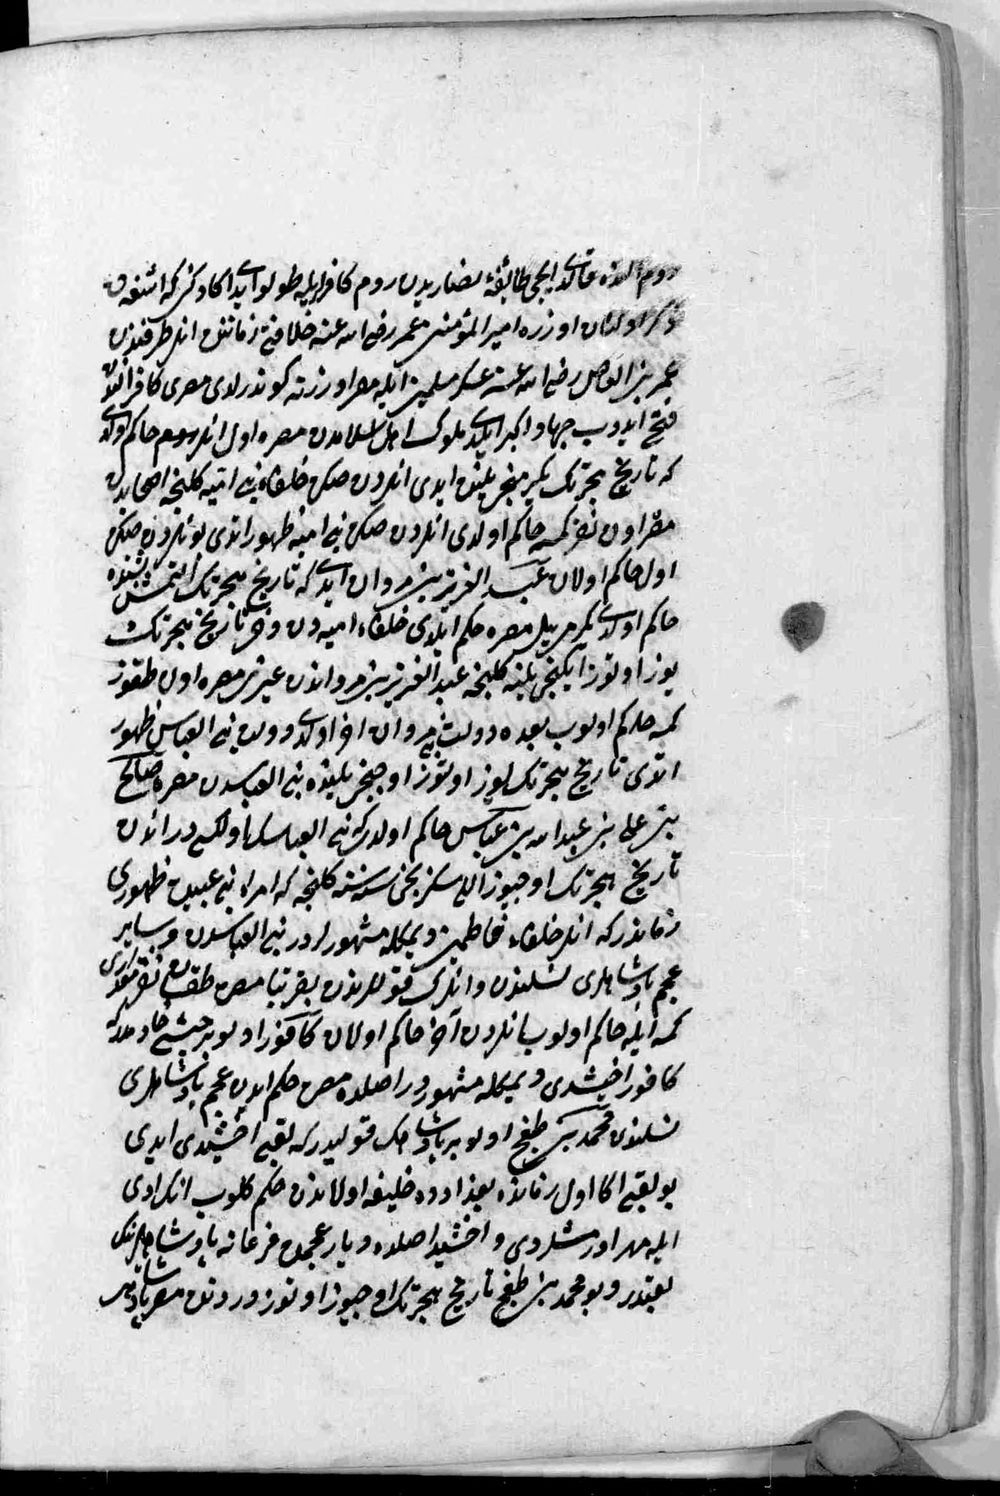 روم النده قالدی ایچی طائفهٔ نصاریدن روم کافرلریله طولو ایدی اکا دکن که
ذکر اولنان اوزره امیر المؤمنین عمر رضی الله عنه خلافتی زماننده انلر طرفندن
عمر بن العاص رضی الله عنه عسکر مسلمین ایله مصر اوزرنه کوندرلدی مصری کافر الندن
فتح ایدوب جهاد اکبر ایلدی ملوک اهل اسلامدن مصره اول انلر حاکم اولدی
که تاریخ هجرتک یکرمنجی ییلنده ایدی انلردن صکره خلفاء بنی امیه کلنجه اصحابدن
مقدار اون نفر کمسه حاکم اولدی انلردن صکره بنی امیه ظهور اتدی بونلردن صکره
اول حاکم اولان عبد العزیز بن مروان ایدی که تاریخ هجرتک التمش بشنده
حاکم اولدی یکرمی ییل مصره حکم ایلدی خلفاء امیه دن و تاریخ هجرتک
یوز اوتوز ایکنجی ییلنه کلنجه عبد العزیز بن مرواندن غیری مصره اون طقوز
کمسه حاکم اولوب بعده دولت بنی مروان اخر اولدی دولت بنی العباس ظهور
اتدی تاریخ هجرتک یوز اوتوز اوچنجی ییلنده بنی العباسدن مصره صالح
بن علی بن عبد الله بن عباس حاکم اولدی که بنی العباسک اولکیسیدر اندن
تاریخ هجرتک اوچیوز اللی سکزنجی سنه سنه کلنجه که امراء بنی عبیدک ظهوری
زمانیدر که انلر خلفاء فاطمین دیمکله مشهورلردر بنی العباسدن و سایر
عجم پادشاهلری نسلندن وانلرک قوللرندن یقرتبا مصره طقسان نفر مقداری
کمسه ایله حاکم اولوب انلردن آخر حاکم اولان کافور اولوب بر حبشی خادمدر که
کافور اخشیدی دیمکله مشهوردر اصلده مصره حکم ایدن عجم پادشاهلری
نسلندن محمد بن طغج اولو بر پادشاهک قولیدر که لقبی اخشیدی ایدی
بو لقبی اکا اول زمانده بغدادده خلیفه اولاندن حکم کلوب انک ادی
ایله مهر اورمشلردی و اخشید اصلده دیار عجمده فرغانه پادشاهلرینک
لقبیدر و بو محمد بن طغج تاریخ هجرتک اوچیوز اوتوز دردنده مصر پادشاهی